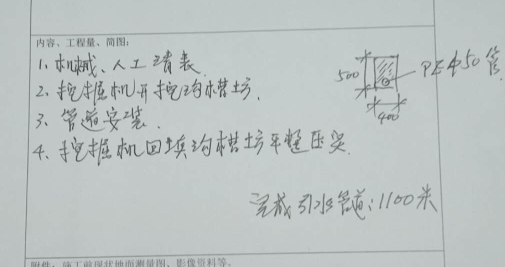 内容、工程量、简图:
1、机械、人工清表.
2、挖掘机开挖沟槽土方.
500
PEΦ50管
400
3、管道安装.
4、挖掘机回填沟槽土方平整压实.
完成引水管道:1100米
附件:施工前现状地面测量图、影像资料等。